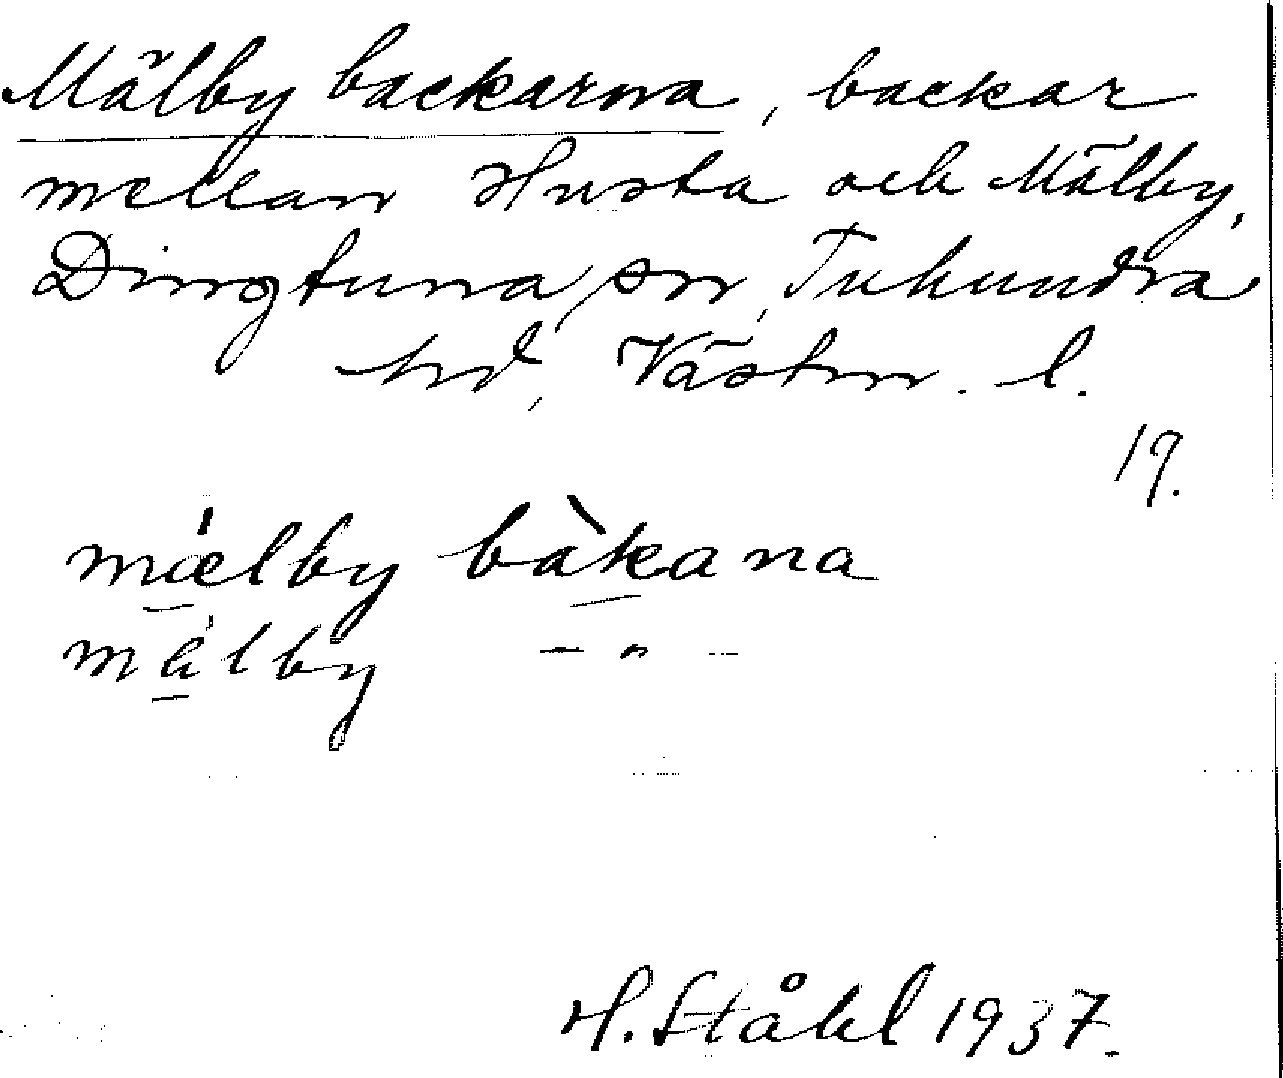 Mälby backarna, backar
mellan Husta och Mälby,
Dingtuna sn, Tuhundra
hd, Västm. l.
19.
mælby bàkana
mälby – " –
H. Ståhl 1937.